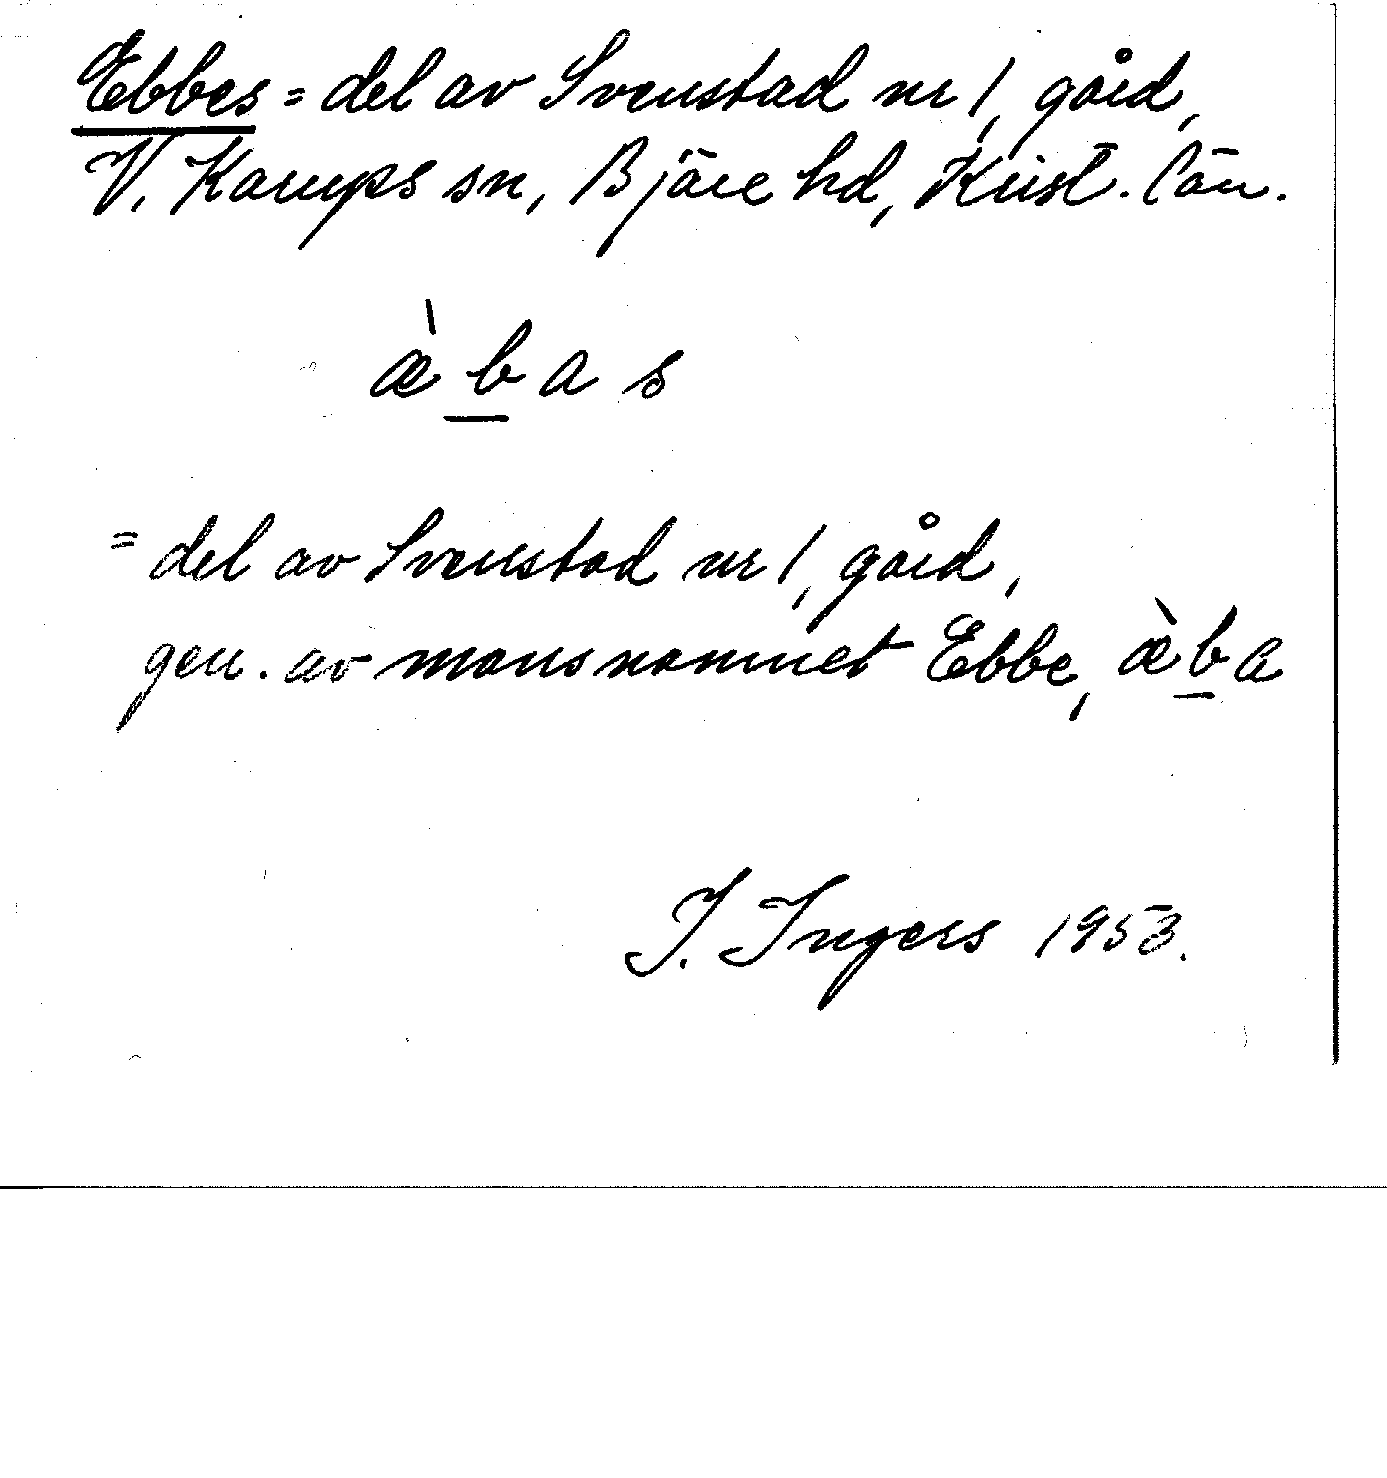 Ebbes = del av Svenstad nr 1, gård,
V. Karups sn, Bjäre hd, Krist. län.
æ̀bas
= del av Svenstad nr 1, gård,
gen. av mansnamnet Ebbe, æ̀ba
I. Ingers 1953.